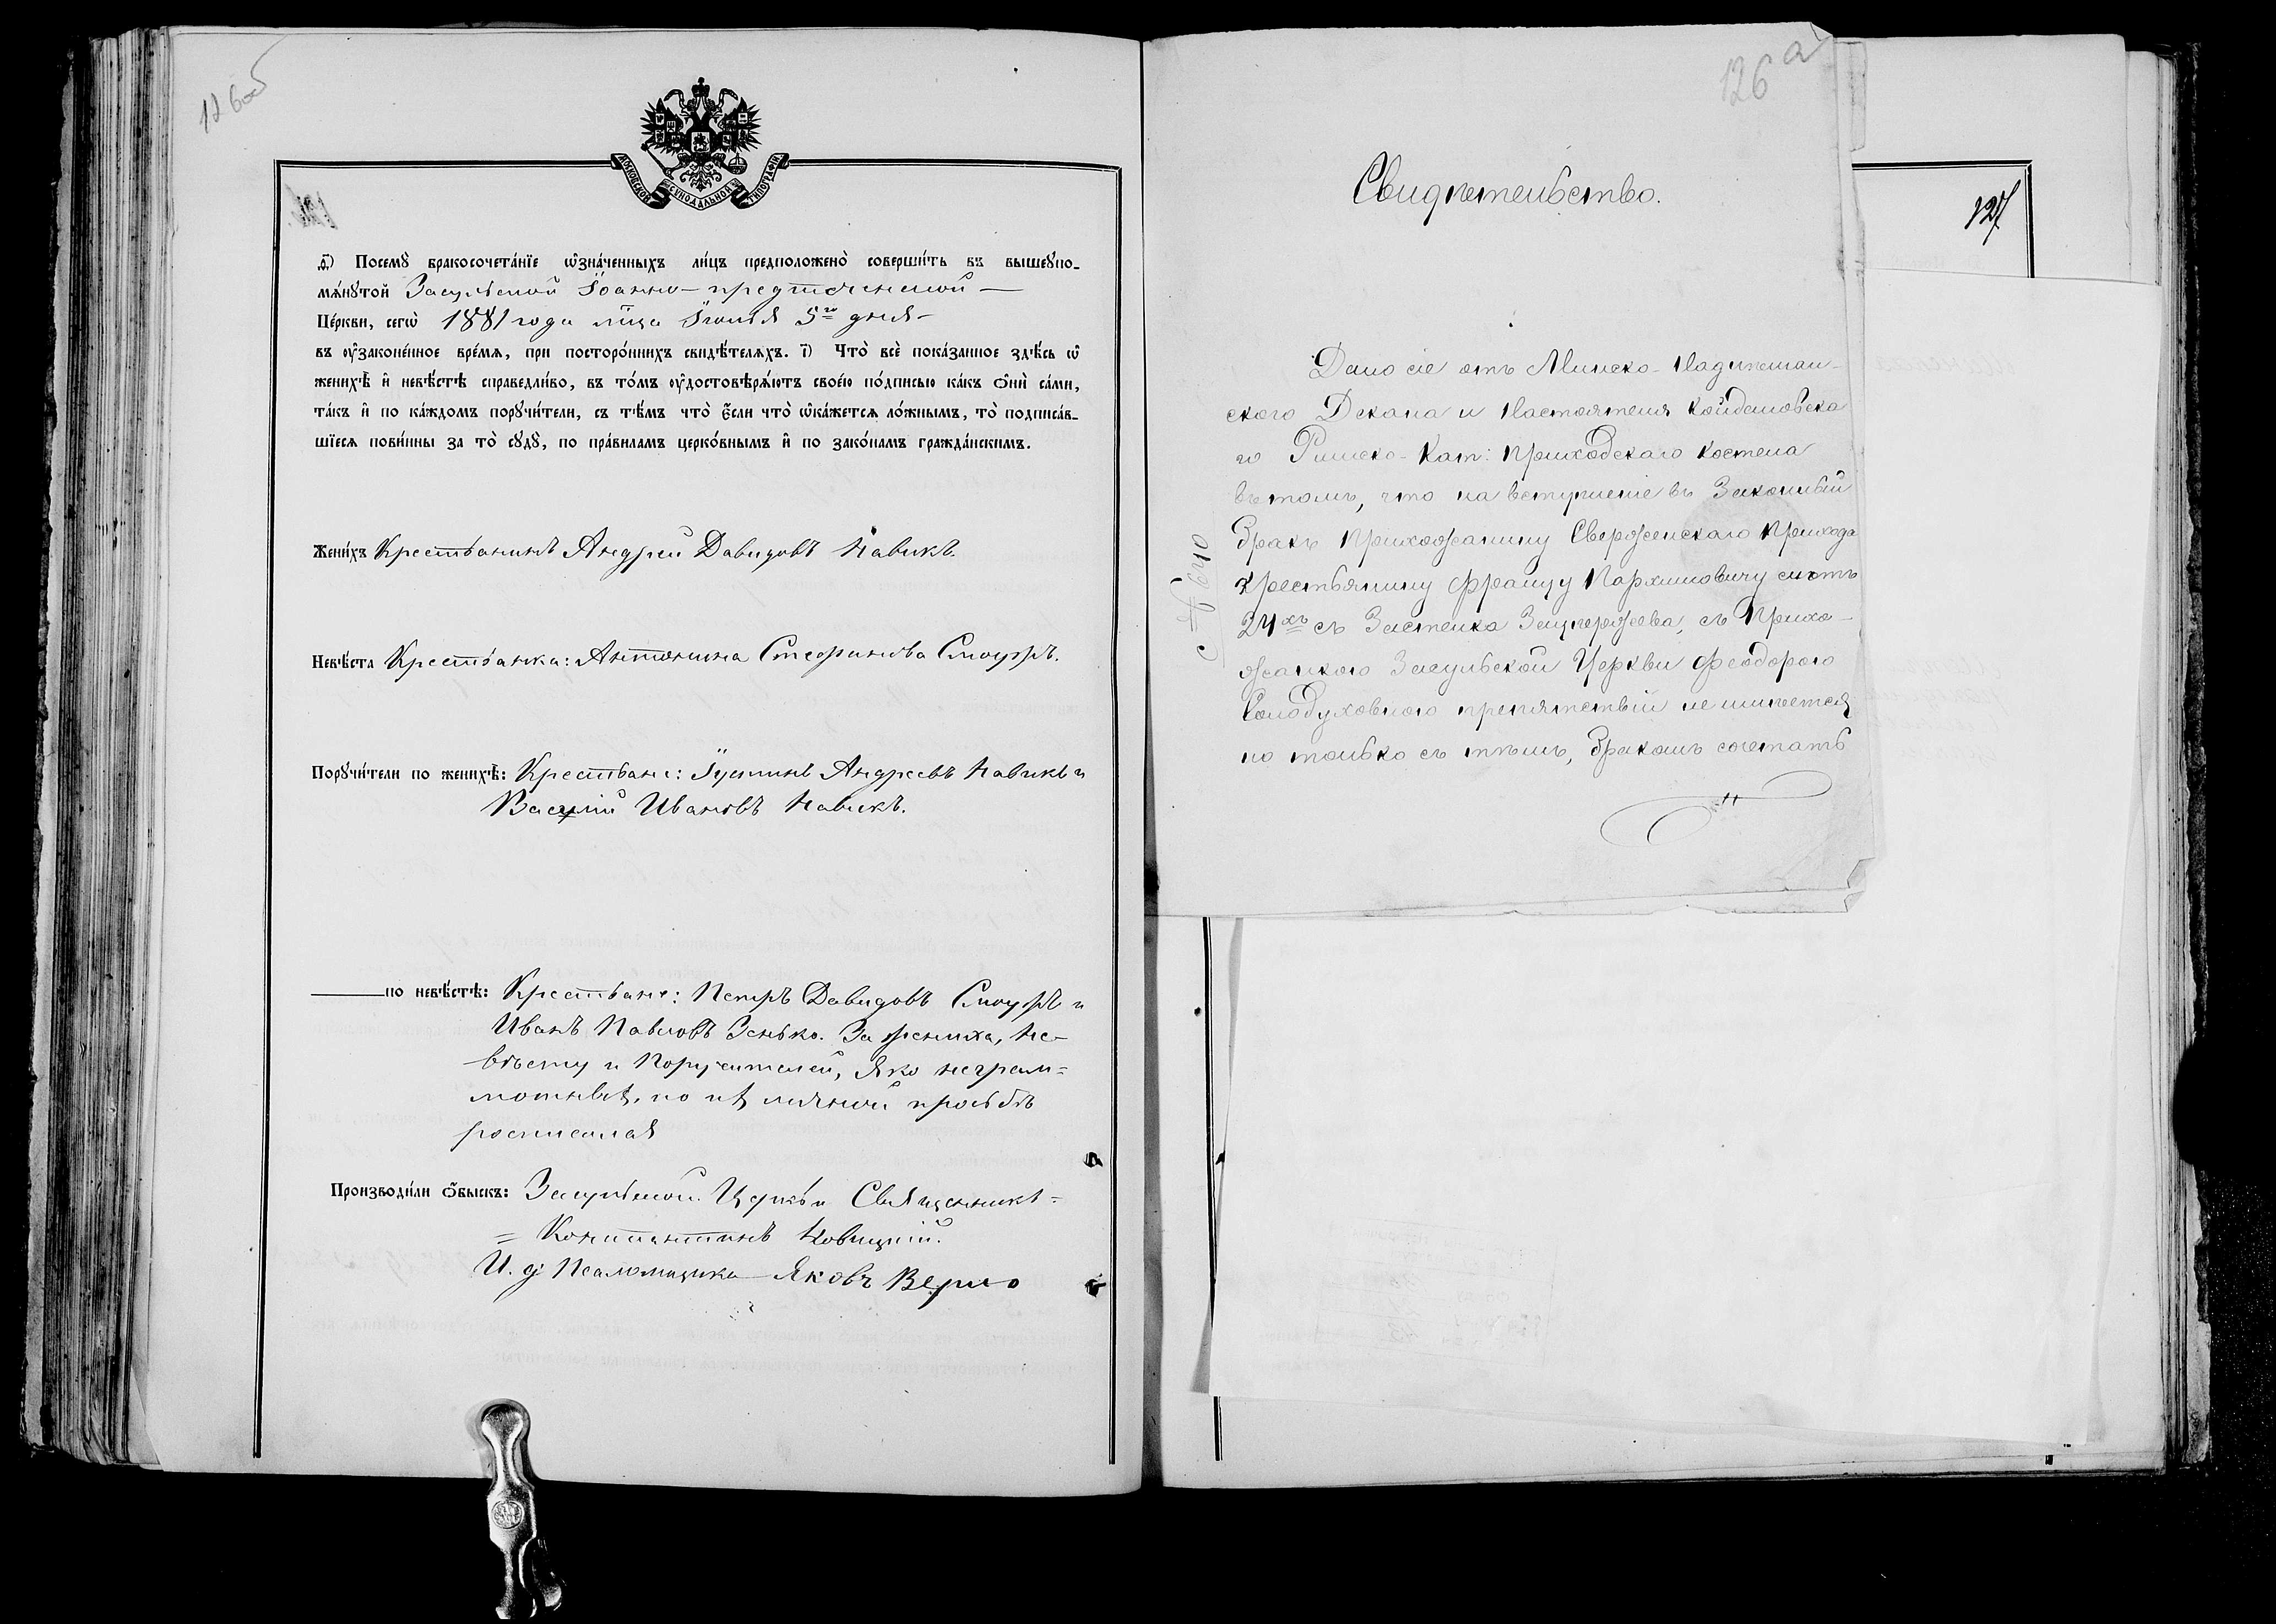 126об
МОСКОВСКОЙ СѴНОДАЛЬНОЙ ТИПОГРАФІИ
.д҃) Посемꙋ̀ бракосочета́нїе ѡ҆зна́ченныхъ ли́цъ предположено̀ соверши́ть въ вышеꙋпо-
мѧ́нꙋтой Засульской Іоанно-предтеченской —
Це́ркви, сегѡ̀ 1881 года мца Іюля 5го дня —
въ ᲂу҆законе́нное вре́мѧ, при посторо́ннихъ свидѣ́телѧхъ. і҃) Что̀ всѐ пока́занное здѣ́сь ѡ҆
женихѣ̀ и҆ невѣ́стѣ справедли́во, въ то́мъ ᲂу҆достовѣрѧ́ютъ свое́ю по́дписью ка́къ ѻ҆нѝ са́ми,
та́къ и҆ по ка́ждомъ порꙋчи́тели, съ тѣ́мъ что̀ є҆́сли что̀ ѡ҆ка́жетсѧ ло́жнымъ, то̀ подписа́в-
шїесѧ пови́нны за то̀ сꙋдꙋ̀, по пра́виламъ церко́внымъ и҆ по зако́намъ гражда́нскимъ.
Жени́хъ Крестьянинъ Андрей Давидовъ Навикъ.
Невѣ́ста Крестьянка: Антонина Стефанова Сноуръ.
Порꙋчи́тели по женихѣ̀: Крестьяне: Іустинъ Андреевъ Навикъ и
Василій Ивановъ Навикъ.
по невѣ́стѣ: Крестьяне: Петръ Давидовъ Сноуръ и
Иванъ Павловъ Зенько. За жениха, не-
вѣсту и Поручителей, яко неграм=
мотныхъ, по ихъ личной просьбѣ
росписался
Производи́ли ѻ҆́быскъ: Засульской Церкви Священникъ=
= Константинъ Новицкій.
И. д. Псаломщика Яковъ
126а
Свидѣтельство.
Дано сіе отъ Минско-Надниман-
ского Декана и Настоятеля Койдановска
го Римско-Кат: приходскаго костела
въ томъ, что на вступленіе въ Законный
бракъ прихожанину Сверженскаго прихода
крестьянину Францу Пархимовичу
24хъ съ Застенка съ Прихо-
жанкою Засульской Церкви Феодорою
Солодуховною препятствій не имѣется
но только съ тѣмъ, бракомъ сочетать
127